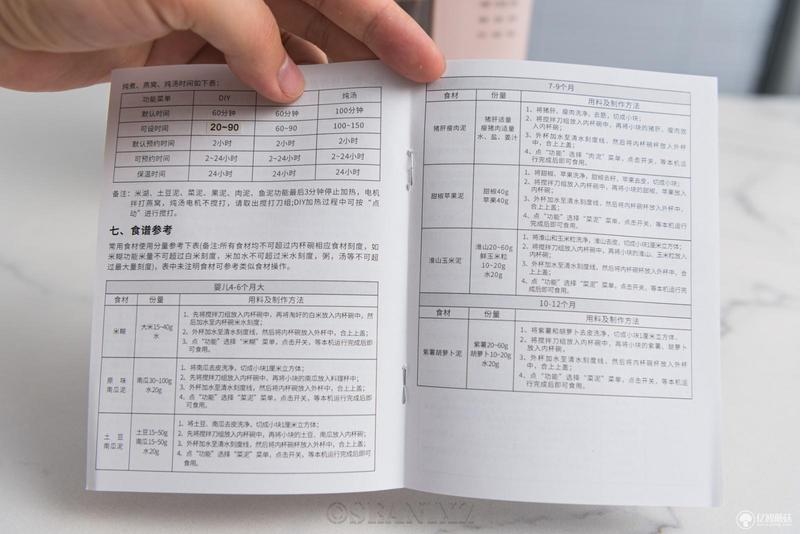 炖煮、燕窝、炖汤时间如下表：
功能菜单 DIY 炖汤
默认时间 60分钟 60分钟 100分钟
可设时间 20~90 60~90 100~150
默认预约时间 2小时 2小时 2小时
可预约时间 2~24小时 2~24小时 2~24小时
保温时间 24小时 24小时 24小时
备注：米湖、土豆泥、菜泥、果泥、肉泥、鱼泥功能最后3分钟停止加热，电机
拌打燕窝，炖汤电机不搅打，请取出搅打刀组;DIY加热过程中可按“点
动”进行搅打。
七、食谱参考
常用食材使用分量参考下表(备注:所有食材均不可超过内杯碗相应食材刻度，如
米糊功能米量不可超过白米刻度，米加水不可超过米水刻度，粥，汤等不可超
过最大量刻度)，表中未注明食材可参考类似食材操作。
婴儿4-6个月大
食材 份量 用料及制作方法
米糊
大米15~40g
水
1、先将搅拌刀组放入内杯碗中，再将淘好的白米放入内杯碗中，然
后加水至内杯碗米水刻度；
2、外杯加水至清水刻度线，然后将内杯碗放入外杯中，合上上盖；
3、点“功能”选择“米糊”菜单，点击开关，等本机运行完成后即
可食用。
原味
南瓜泥
南瓜30~100g
水20g
1、将南瓜去皮洗净，切成小块1厘米立方体；
2、先将搅拌刀组放入内杯碗中，再将小块的南瓜放入料理杯中；
3、外杯加水至清水刻度线，然后将内杯碗放入外杯中，合上上盖；
4、点“功能”选择“菜泥”菜单，点击开关，等本机运行完成后即
可食用。
土豆
南瓜泥
土豆15~50g
南瓜15~50g
水20g
1、将土豆、南瓜去皮洗净，切成小块1厘米立方体；
2、先将搅拌刀组放入内杯碗中，再将小块的土豆、南瓜放入内杯碗；
3、外杯加水至清水刻度线，然后将内杯碗杯放入外杯中，合上上盖；
4、点“功能”选择“菜泥”菜单，点击开关，等本机运行完成后即
可食用。
7-9个月
食材 份量 用料及制作方法
猪肝瘦肉泥
猪肝适量
瘦猪肉适量
水、盐、姜汁
1、将猪肝、瘦肉洗净，去筋，切成小块；
2、将搅拌刀组放入内杯碗中，再将小块的猪肝、瘦肉放
入内杯碗；
3、外杯加水至清水刻度线，然后将内杯碗杯放入外杯
中，合上上盖；
4、点“功能”选择“肉泥”菜单，点击开关，等本机运
行完成后即可食用。
甜椒苹果泥
甜椒40g
苹果40g
1、将甜椒、苹果洗净，甜椒去籽，苹果去皮，切成小块；
2、将搅拌刀组放入内杯碗中，再将小块的甜椒、苹果放入
内杯碗；
3、外杯加水至清水刻度线，然后将内杯碗杯放入外杯
中，合上上盖；
4、点“功能”选择“菜泥”菜单，点击开关，等本机运
行完成后即可食用。
淮山玉米泥
淮山20~60g
鲜玉米粒
10~20g
水20g
1、将淮山和玉米粒洗净，淮山去皮，切成小块1厘米立方体；
2、将搅拌刀组放入内杯碗中，再将小块的淮山、玉米粒放入
内杯碗；
3、外杯加水至清水刻度线，然后将内杯碗杯放入外杯
中，合上上盖；
4、点“功能”选择“菜泥”菜单，点击开关，等本机运行完
成后即可食用。
10-12个月
食材 份量 用料及制作方法
紫薯胡萝卜泥
紫薯20~60g
胡萝卜10~20g
水20g
1、将紫薯和胡萝卜去皮洗净，切成小块1厘米立方体；
2、将搅拌刀组放入内杯碗中，再将小块的紫薯、胡萝卜
放入内杯碗；
3、外杯加水至清水刻度线，然后将内杯碗杯放入外杯
中，合上上盖；
4、点“功能”选择“菜泥”菜单，点击开关，等本机运
行完成后即可食用。
亿智蘑菇